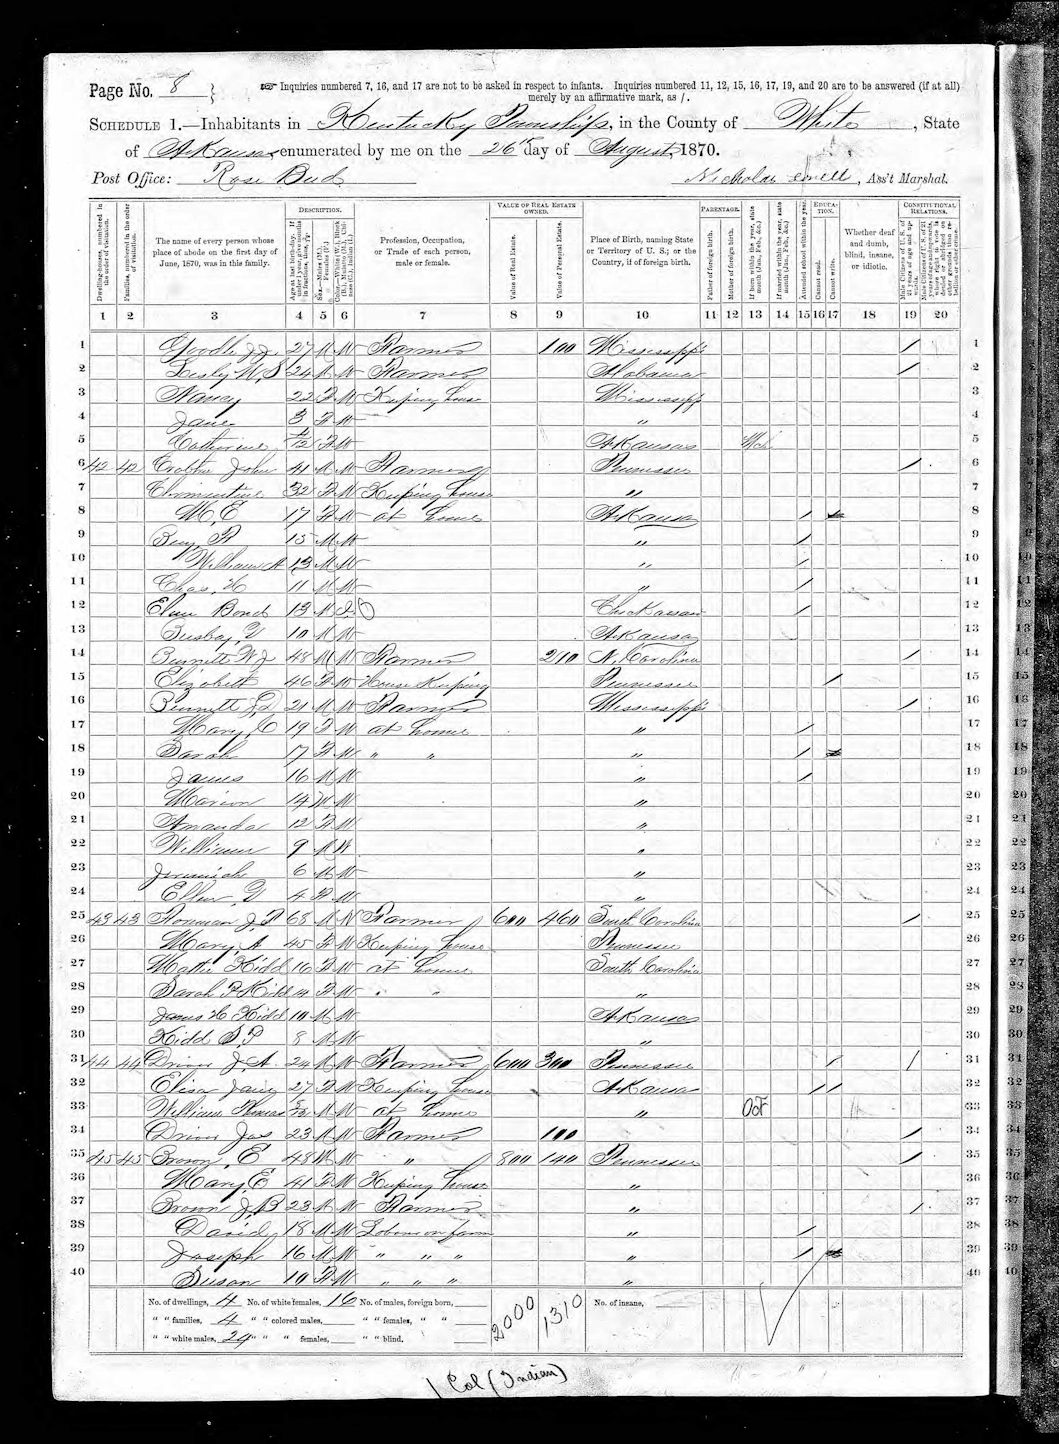 Page No. 8
☞ Inquiries numbered 7, 16, and 17 are not to be asked in respect to infants. Inquiries numbered 11, 12, 15, 16, 17, 19, and 20 are to be answered (if at all) merely by an affirmative mark, as /.
SCHEDULE 1.—Inhabitants in Kentucky Township, in the County of White, State
of Arkansas enumerated by me on the 26 day of August, 1870.
Post Office: Rose Bud Nicholas, Ass't Marshal.
Dwelling-houses, numbered in the order of visitation.
Families, numbered in the order of visitation.
The name of every person whose place of abode on the first day of June, 1870, was in this family.
DESCRIPTION.
Profession, Occupation, or Trade of each person, male or female.
VALUE OF REAL ESTATE OWNED.
Value of Real Estate.
Value of Personal Estate.
Place of Birth, naming State or Territory of U. S.; or the Country, if of foreign birth.
PARENTAGE.
Father of foreign birth.
Mother of foreign birth.
If born within the year, state month (Jan., Feb., &c.)
If married within the year, state month (Jan., Feb., &c.)
EDUCATION.
Attended school within the year.
Cannot read.
Cannot write.
Whether deaf and dumb, blind, insane, or idiotic.
CONSTITUTIONAL RELATIONS.
1 2 3 4 5 6 7 8 9 10 11 12 13 14 15 16 17 18 19 20
1 27 M W Farmer 100 Mississippi / 1
2 24 M W Farmer Alabama / 2
3 Nancy 22 F W Keeping house Mississippi 3
4 Jane 3 F W " 4
5 Catherine F W Arkansas Mch 5
6 42 42 John 41 M W Farmer Tennessee / 6
7 Clementine 32 F W Keeping house " 7
8 M, E 17 F W at home Arkansas / 8
9 Benj, F 15 M W " / 9
10 William A 13 M W " / 10
11 Chas, H 11 M W " / 11
12 Bond 13 M I Chickasaw / 12
13 10 M W Arkansas 13
14 Bennett W J 48 M W Farmer 210 N. Carolina / 14
15 Elizabeth 46 F W House Keeping Tennessee / 15
16 Bennett 21 M W Farmer Mississippi / 16
17 Mary, C 19 F W at home " / 17
18 Sarah 17 F W " " " / 18
19 James 16 M W " / 19
20 Marion 14 M W " 20
21 Amanda 12 F W " 21
22 William 9 M W " 22
23 Jeremiah 6 M W " 23
24 Ellen, 4 F W " 24
25 43 43 J, P 68 M W Farmer 600 460 South Carolina / 25
26 Mary, A 45 F W Keeping house Tennessee 26
27 Mattie Kidd 16 F W at home South Carolina 27
28 Sarah P Kidd 14 F W " " " 28
29 James H Kidd 10 M W Arkansas 29
30 Kidd S, P 8 M W " 30
31 44 44 Driver J, A 24 M W Farmer 600 300 Tennessee / / 31
32 Eliza Jane 27 F W Keeping house Arkansas / / 32
33 William Thomas M W at home " Oct 33
34 Driver Jas 23 M W Farmer 100 / 34
35 45 45 Brown, E 48 M W " 800 140 Tennessee / 35
36 Mary, E 41 F W Keeping house " 36
37 Brown J, B 23 M W Farmer " / 37
38 David 18 M W Labour on farm " / 38
39 Joseph 16 M W " " " " / 39
40 Susan 10 F W " " " " 40
No. of dwellings, 4 No. of white females, 16 No. of males, foreign born, 2000 1310 No. of insane,
" " families, 4 " " colored males, " " females, " "
" " white males, 24 " " females, " " blind,
1 Col (Indian)